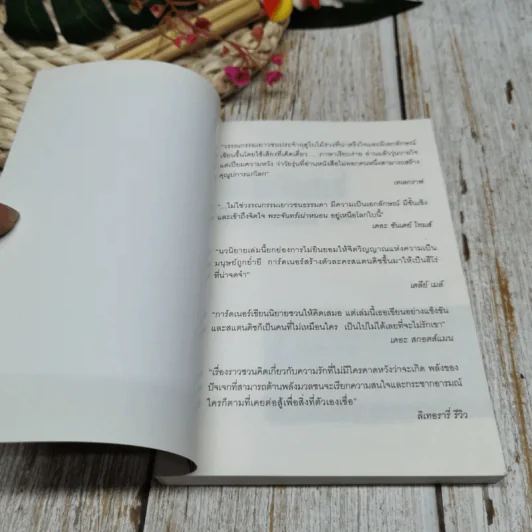 "วรรณกรรมเยาวชนประจำฤดูใบไม้ร่วงที่น่าตรึงใจและมีเอกลักษณ์
เขียนขึ้นโดยใช้เสียงที่เด็ดเดี่ยว ... ภาษาเรียบง่าย อ่านแล้ววุ่นวายใจ
แต่เปี่ยมความหวัง ว่าวัยรุ่นที่อ่านหนังสือไม่ออกคนหนึ่งสามารถสร้าง
คุณูปการแก่โลก"
เทเลกราฟ
"...ไม่ใช่วรรณกรรมเยาวชนธรรมดา มีความเป็นเอกลักษณ์ มีชั้นเชิง
และเข้าถึงจิตใจ พระจันทร์เน่าหนอน อยู่เหนือโลกใบนี้"
เดอะ ซันเดย์ ไทมส์
"นวนิยายเล่มนี้ยกย่องการไม่ยินยอมให้จิตวิญญาณแห่งความเป็น
มนุษย์ถูกย่ำยี การ์ดเนอร์สร้างตัวละครสแตนดิชขึ้นมาให้เป็นฮีโร่
ที่น่าจดจำ"
เดลีย์ เมล์
"การ์ดเนอร์เขียนนิยายชวนให้คิดเสมอ แต่เล่มนี้เธอเขียนอย่างแข็งขัน
และสแตนดิชก็เป็นคนที่ไม่เหมือนใคร เป็นไปไม่ได้เลยที่จะไม่รักเขา"
เดอะ สกอตส์แมน
"เรื่องราวชวนคิดเกี่ยวกับความรักที่ไม่มีใครคาดหวังว่าจะเกิด พลังของ
ปัจเจกที่สามารถต้านพลังมวลชนจะเรียกความสนใจและกระชากอารมณ์
ใครก็ตามที่เคยต่อสู้เพื่อสิ่งที่ตัวเองเชื่อ"
ลิเทอรารี่ รีวิว